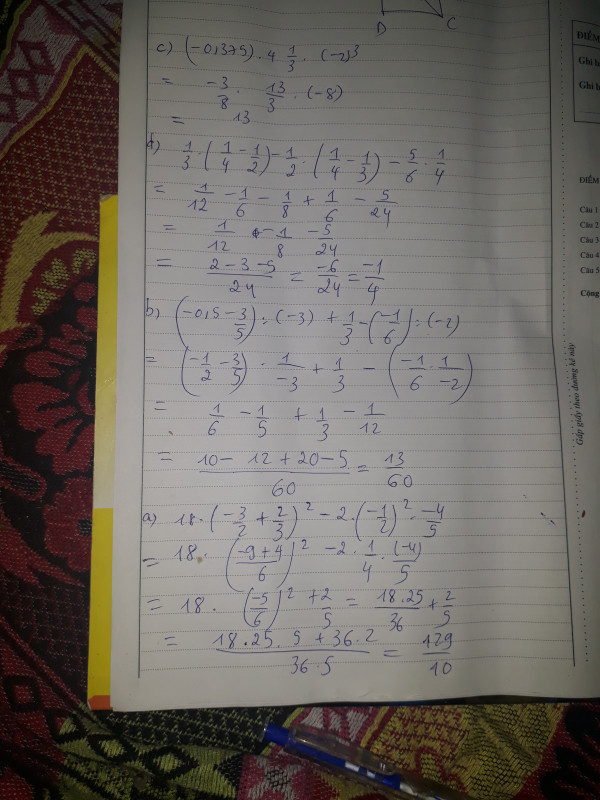 D C
c) (-0,375) . 4 1/3 . (-2)³
= -3/8 . 13/3 . (-8)
= 13
d) 1/3 . (1/4 - 1/2) - 1/2 . (1/4 - 1/3) - 5/6 . 1/4
= 1/12 - 1/6 - 1/8 + 1/6 - 5/24
= 1/12 - 1/8 - 5/24
= (2 - 3 - 5)/24 = -6/24 = -1/4
b) (-0,5 - 3/5) : (-3) + 1/3 - (-1/6) : (-2)
= (-1/2 - 3/5) . 1/-3 + 1/3 - (-1/6 . 1/-2)
= 1/6 - 1/5 + 1/3 - 1/12
= (10 - 12 + 20 - 5)/60 = 13/60
a) 18 . (-3/2 + 2/3)² - 2 . (-1/2)² . -4/5
= 18 . ((-9 + 4)/6)² - 2 . 1/4 . (-4)/5
= 18 . (-5/6)² + 2/5 = 18.25/36 + 2/5
= (18.25.5 + 36.2)/36.5 = 129/10
ĐIỂM
Ghi b
Ghi b
ĐIỂM
Câu 1
Câu 2
Câu 3
Câu 4
Câu 5
Cộng
Gấp giấy theo đường kẻ này